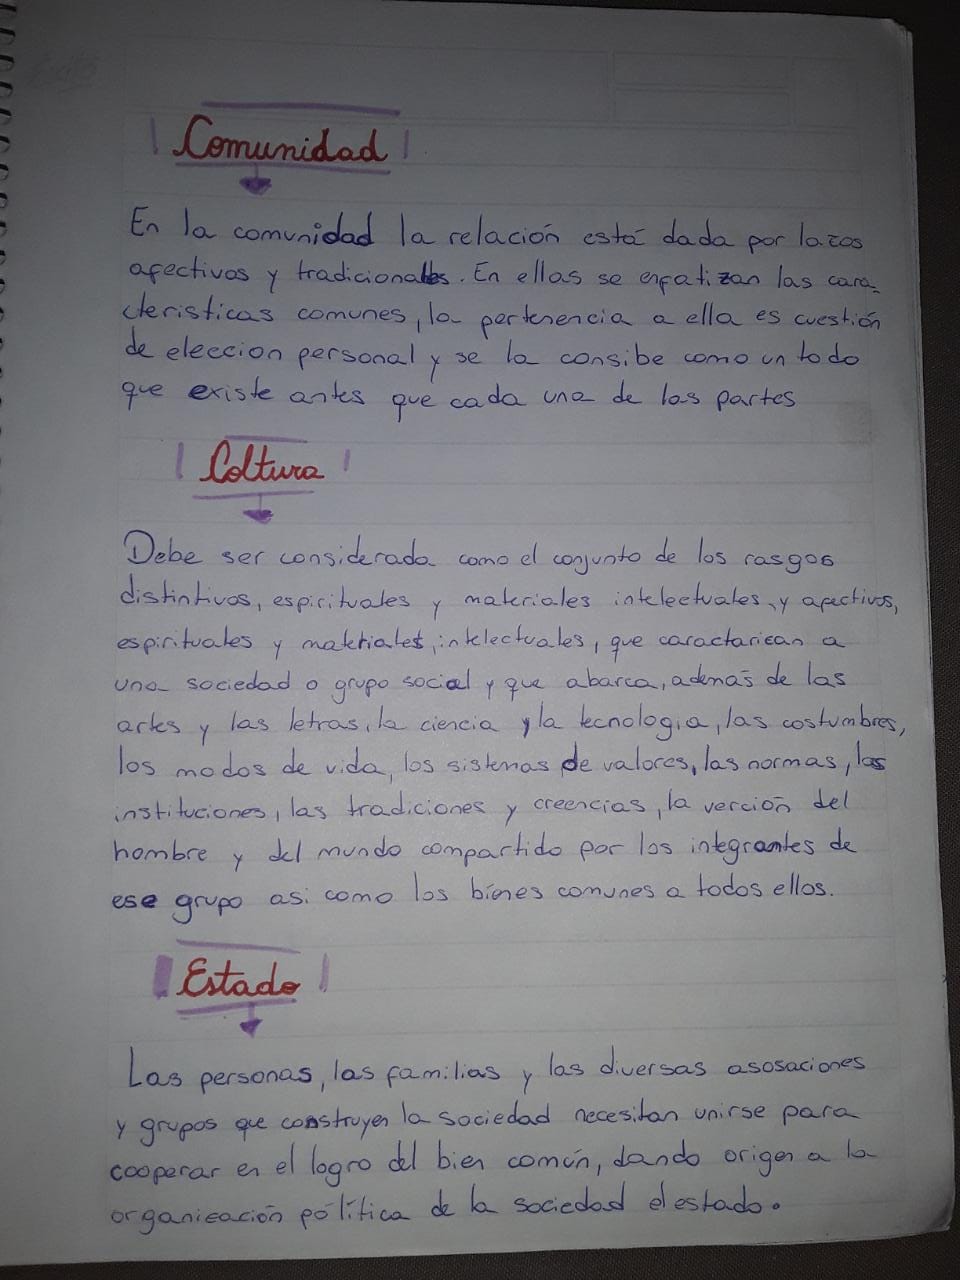 Comunidad
En la comunidad la relación está dada por lazos
afectivos y tradicionales. En ellas se enfatizan las cara-
cteristicas comunes, la pertenencia a ella es cuestión
de eleccion personal y se la consibe como un todo
que existe antes que cada una de las partes
Coltura
Debe ser considerada como el conjunto de los rasgos
distintivos, espirituales y materiales intelectuales y afectivos,
espirituales y materiales, intelectuales, que caractarizan a
una sociedad o grupo social y que abarca, además de las
artes y las letras, la ciencia y la tecnologia, las costumbres,
los modos de vida, los sistemas de valores, las normas, las
instituciones, las tradiciones y creencias, la verción del
hombre y del mundo compartido por los integrantes de
ese grupo asi como los bienes comunes a todos ellos.
Estado
Las personas, las familias y las diversas asosaciones
y grupos que construyen la sociedad necesitan unirse para
cooperar en el logro del bien común, dando origen a la
organización política de la sociedad el estado.